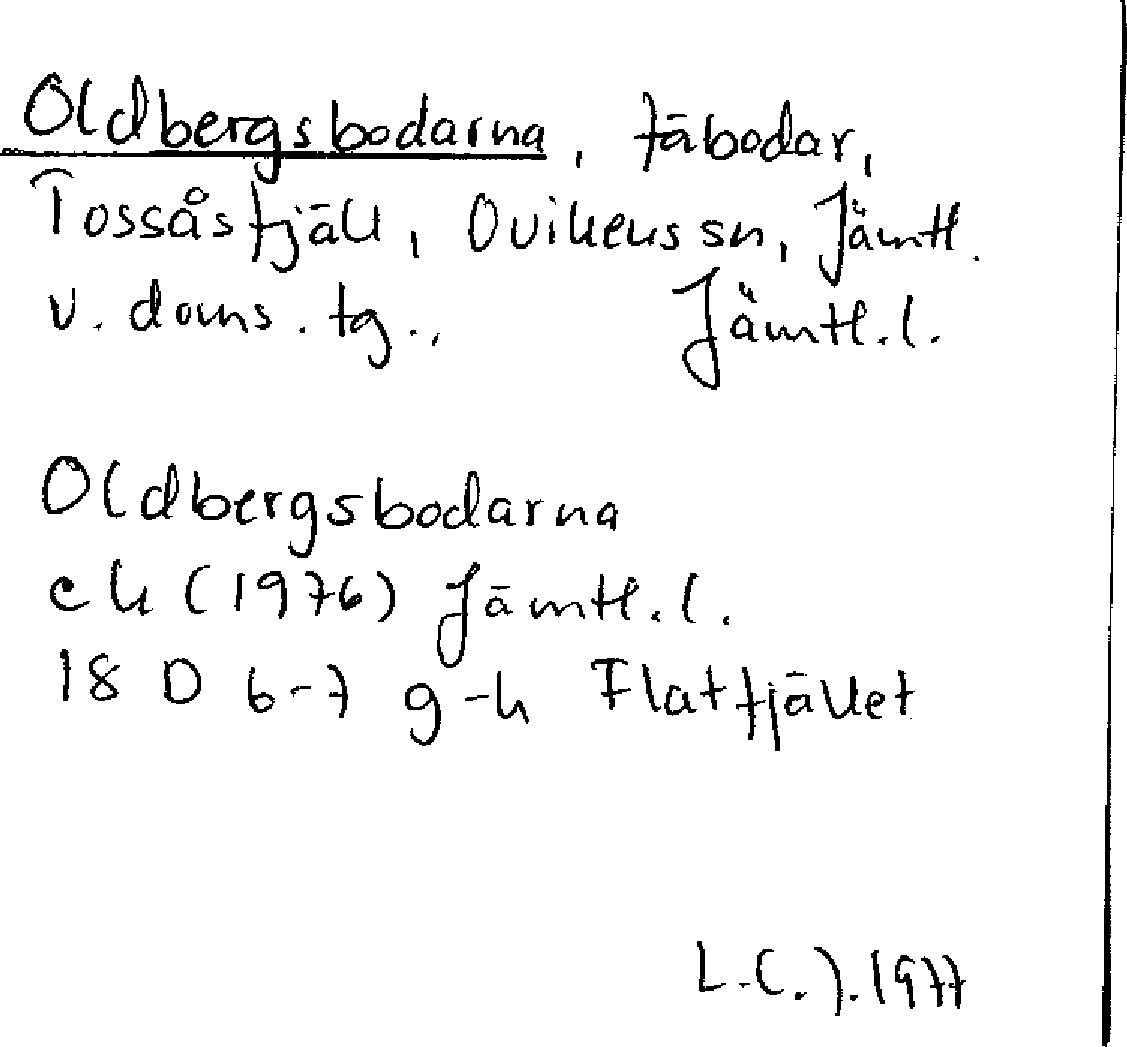 Oldbergsbodarna, fäbodar,
Tossåsfjäll, Ovikens sn, Jämtl.
v. doms. tg., Jämtl. l.
Oldbergsbodarna
ek (1976) Jämtl. l.
18 D 6-7 g-h Flatfjället
L.C.J. 1977